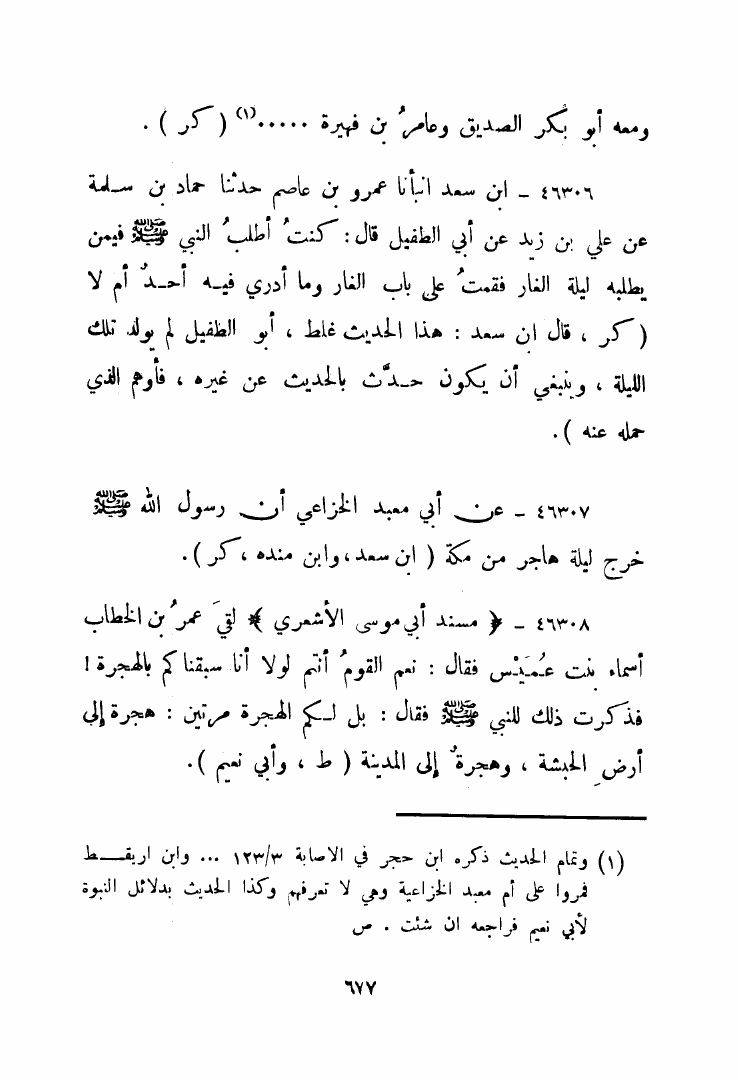 ومعه أبو بكر الصديق وعامرُ بن فهيرة .....(١) ( كر ) .
٤٦٣٠٦ ـ ابن سعد انبأنا عمرو بن عاصم حدثنا حماد بن سلمة
عن علي بن زيد عن أبي الطفيل قال : كنتُ أطلبُ النبي ﷺ فيمن
يطلبه ليلة الغار فقمتُ على باب الغار وما أدري فيه أحدٌ أم لا
( كر ، قال ابن سعد : هذا الحديث غلط ، أبو الطفيل لم يولد تلك
الليلة ، وينبغي أن يكون حدَّث بالحديث عن غيره ، فأوهم الذي
حمله عنه ) .
٤٦٣٠٧ ـ عن أبي معبد الخزاعي أن رسول الله ﷺ
خرج ليلة هاجر من مكة ( ابن سعد ، وابن منده ، كر ) .
٤٦٣٠٨ ـ ﴿ مسند أبي موسى الأشعري ﴾ لقيَ عمرُ بن الخطاب
أسماء بنت عُمَيْس فقال : نعم القومُ أنتم لولا أنا سبقناكم بالهجرة !
فذكرت ذلك للنبي ﷺ فقال : بل لكم الهجرة مرتين : هجرة إلى
أرضِ الحبشة ، وهجرةٌ إلى المدينة ( ط ، وأبي نعيم ) .
(١) وتمام الحديث ذكره ابن حجر في الاصابة ١٢٣/٣ ... وابن اريقط
فمروا على أم معبد الخزاعية وهي لا تعرفهم وكذا الحديث بدلائل النبوة
لأبي نعيم فراجعه ان شئت . ص
٦٧٧